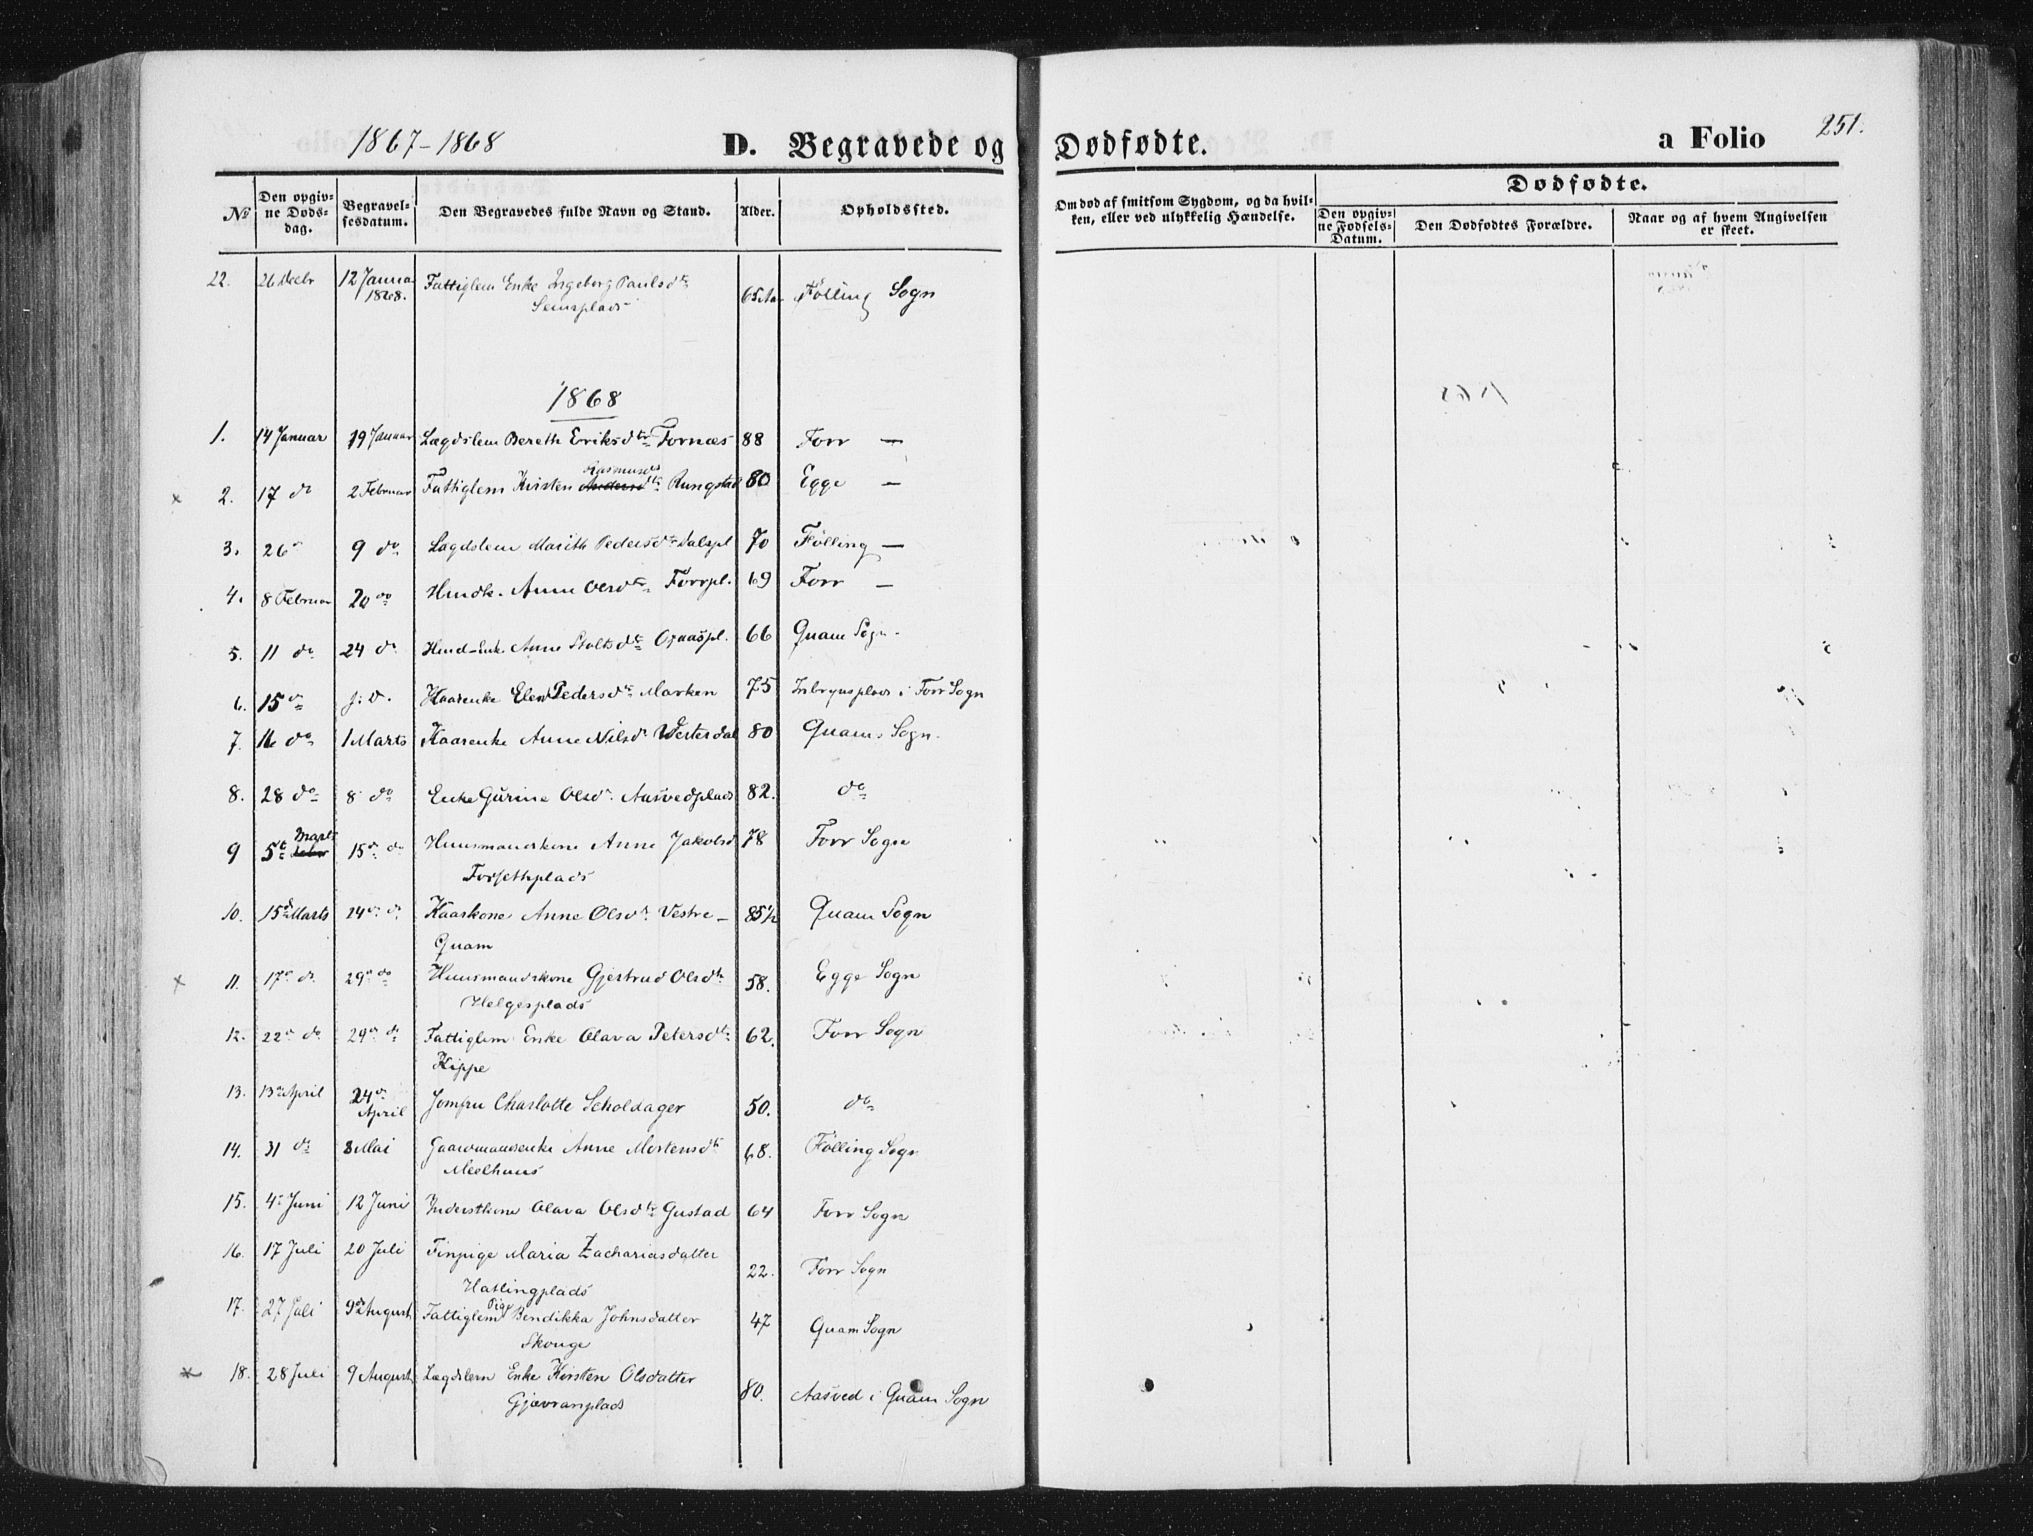 1867-1868 D. Begravede og Dødfødte. a Folio 251.
No Den opgivne Døds-dag. Begravel-sesdatum. Den Begravedes fulde Navn og Stand. Alder. Opholdssted. Om død af smitsom Sygdom, og da hvilken, eller ved ulykkelig Hændelse. Dødfødte. Den opgivne Fødsels-Datum. Den Dødfødtes Forældre. Naar og af hvem Angivelsen er skeet.
22. 26 Decbr 12 Januar 1868. Fattiglem Enke Ingeborg Paulsdtr 65 Aar Følling Sogn
Semsplads
1868
1. 14 Januar 19 Januar Lægdslem Bereth Eriksdtr Fornæs 88 Forr —
2. 17 do 2 Februar Fattiglem Kirsten Rasmusdtr Rungstad 80 Egge —
3. 26 do 9 do Lægdslem Marith Pedersdr Dalspl 70 Følling —
4. 8 Februar 20 do Hmdk. Anne Olsdtr Forrpl. 69 Forr —
5. 11 do 24 do Hmd-Enk. Anne Stoltsdtr pl. 66 Quam Sogn.
6. 15 do Kaarenke Elen Pedersdtr Marken 75 i Forr Sogn
7. 16 do 1 Marts Kaarenke Anne Nilsdr Westerdal 80 Quams Sogn.
8. 28 do 8 do Enke Gurine Olsdr. Aasvedplads 82. do
9 5te Marts 15de do Huusmandskone Anne Jakobsd 78 Forr Sogn
Forsethplads
10. 15de Marts 24de do Kaarkone Anne Olsdr Vestre- 85½ Quam Sogn
Quam
11. 17de do 29de do Huusmandskone Gjertrud Olsdtr 58. Egge Sogn
Helgesplads
12. 22de do 29de do Fattiglem Enke Olava Petersdtr 62. Forr Sogn
Kippe
13. 13de April 24de April Jomfru Charlotte Scholdager 50. do
14. 31 do 3 Mai Gaardmandsenke Anne Mortensdtr 68. Følling Sogn
Meelhuus
15. 4de Juni 12 Juni Inderstkone Olava Olsdtr Gustad 64 Forr Sogn
16. 17 Juli 20 Juli Finpige Maria Zachariasdatter 22. Forr Sogn
Hatlingplads
17. 27 Juli 9de August Fattiglem Pige Bendikka Johnsdatter 47 Quam Sogn
Skouge
18. 28 Juli 9 August Lægdslem Enke Kirsten Olsdatter 80. Aasved i Quam Sogn
Gjævranplads